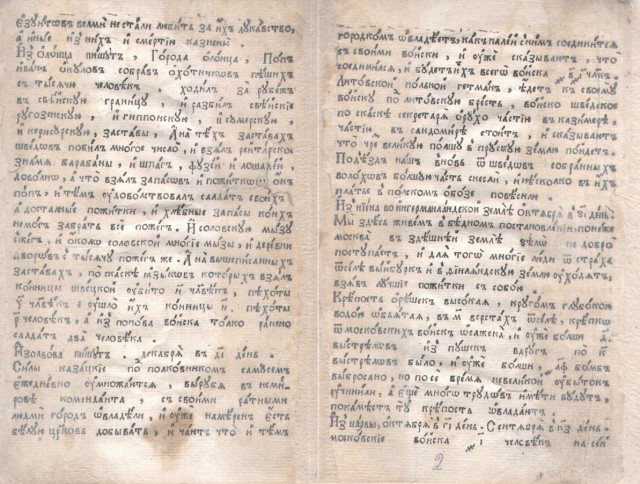 езуитовъ велми не стали любить за ихъ лукавство,
а иные изъ нихъ и смертію казнены.
Изъ олонца пишутъ, Города олонца, Попъ
Иванъ окуловъ собравъ охотниковъ пѣшихъ
съ тысячю человѣкъ, ходилъ за рубежъ
въ свѣйскую границу, и разбилъ свѣйскіе
ругозенскую, и гиппонскую, и сумерскую,
и керисурскую, заставы, А на тѣхъ заставахъ
шведовъ побилъ многое число, и взялъ рейтарское
знамя, барабаны, и шпагъ, фузей, и лошадей,
доволно, а что взялъ запасовъ и пожитковъ онъ
попъ, и тѣмъ удоволствовалъ салдатъ своихъ
а достальные пожитки, и хлѣбные запасы коихъ
не могъ забрать все пожегъ. И соловскую мызу
сжегъ, и около соловской многіе мызы, и деревни
дворовъ съ тысячу пожегъ же. А на вышеписанныхъ
заставахъ, по скаскѣ языковъ которыхъ взялъ
конницы швецкой убито ꙋ҃ человѣкъ, пѣхоты
человѣкъ, а ушло ихъ конницы пѣхоты
р҃ человѣкъ, а изъ попова войска толко ранено
салдатъ два человѣка
Изолвова пишутъ. декабря въ день.
Силы казацкіе подполковникомъ самусемъ
ежедневно умножаются, вырубя въ неми-
ровѣ коменданта, съ своими ратными
людми городъ овладѣли, и уже намѣренъ есть
бѣлую црковь добывать, и чаютъ что и тѣмъ
городкомъ овладѣетъ, какъ палей снимъ соединится
съ своими войски, и уже сказываютъ, что
соединился, и будетъ ихъ всего войска в҃ı тысячь.
Литовской полной гетманъ, ѣдетъ къ своему
войску по литовскую брестъ, войско шведское
по скаскѣ секретаря орухо частію въ казимерѣ
частію въ сандомирѣ стоитъ, и сказываютъ
что чрезъ великую полшу в прускую землю поидетъ.
Подъѣздъ нашъ вновь ѿ шведовъ собранныхъ
волоховъ болшую часть снесли, и нѣсколко въ ихъ
платьѣ в полскомъ обозѣ повѣсили.
Изъ ніена воингерманландской землѣ октября въ день.
Мы здѣсь живемъ в бѣдномъ постановленіи, понеже
москва въ здѣшней землѣ велми не добро
поступаетъ, и для того многіе люди ѿ страха
ѿселѣ выйбуркъ и в финляндскую землю уходятъ,
взявъ лучшіе пожитки съ собою
Крѣпость орѣшекъ высокая, кругомъ глубокою
водою объятая, въ м҃ верстахъ ѿселѣ, крѣпко
ѿ московскихъ войскъ осажена, и уже болши
выстрѣловъ изъ пушекъ вдругъ по к҃
выстрѣловъ было, и уже болши, бомбъ
выбросано, но по се время невеликой убытокъ
учинили, а еще много трудовъ имѣти будутъ,
покамѣстъ ту крѣпость овладаютъ
Изъ нарвы, октября въ день. Сентября въ к҃ѕ день.
московскіе войска ı҃ человѣкъ на сей
2